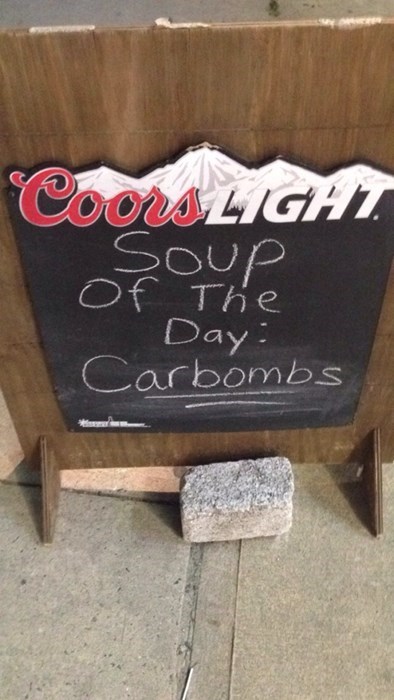 Coors LIGHT
Soup
Of The
Day:
Carbombs